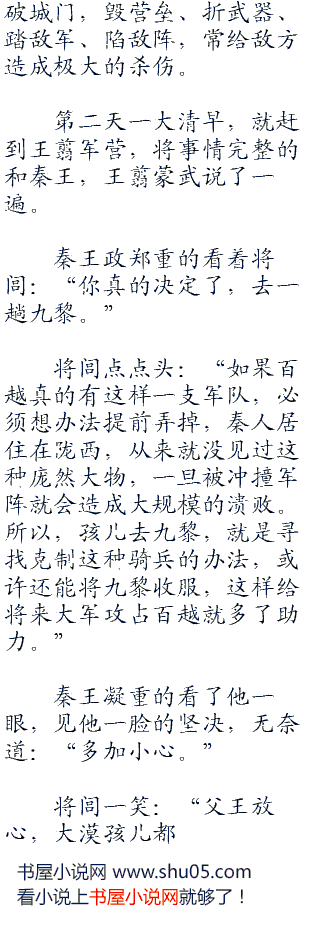 破城门，毁营垒、折武器、
踏敌军、陷敌阵，常给敌方
造成极大的杀伤。
第二天一大清早，就赶
到王翦军营，将事情完整的
和秦王，王翦蒙武说了一
遍。
秦王政郑重的看着将
闾：“你真的决定了，去一
趟九黎。”
将闾点点头：“如果百
越真的有这样一支军队，必
须想办法提前弄掉，秦人居
住在陇西，从来就没见过这
种庞然大物，一旦被冲撞军
阵就会造成大规模的溃败。
所以，孩儿去九黎，就是寻
找克制这种骑兵的办法，或
许还能将九黎收服，这样给
将来大军攻占百越就多了助
力。”
秦王凝重的看了他一
眼，见他一脸的坚决，无奈
道：“多加小心。”
将闾一笑：“父王放
心，大漠孩儿都
书屋小说网 www.shu05.com
看小说上书屋小说网就够了！